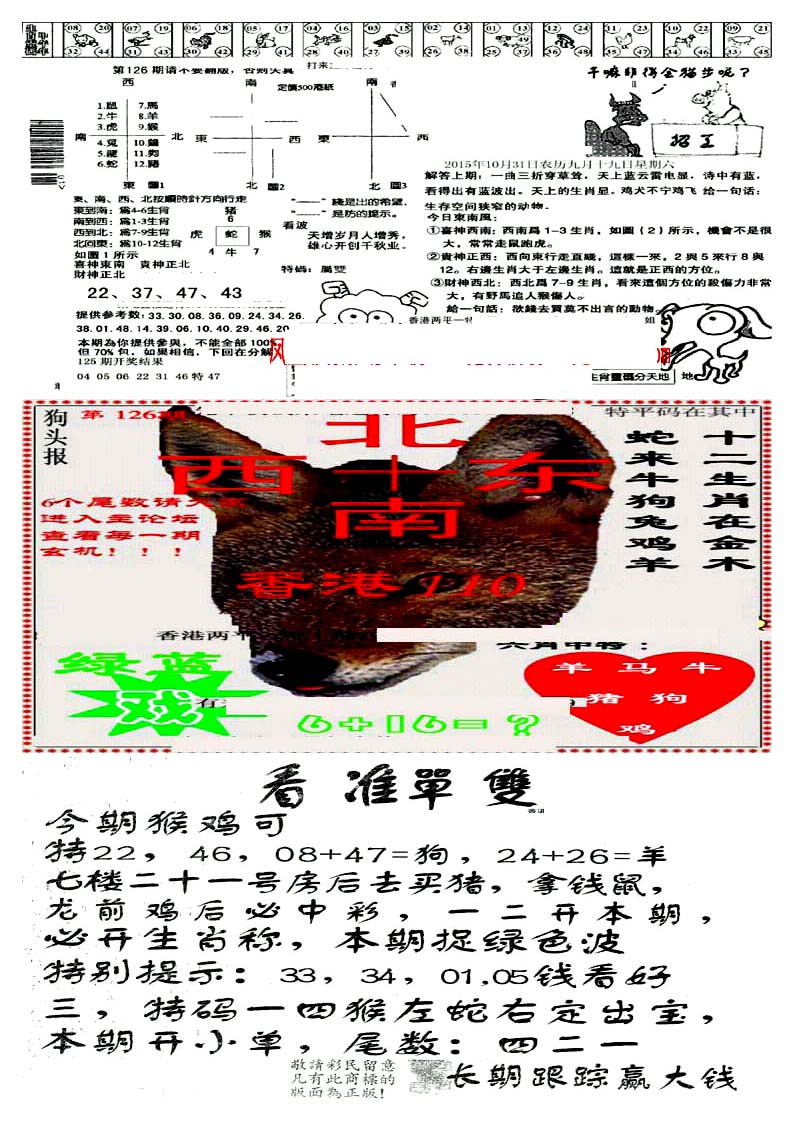 08 20 07 19 06 18 05 17 04 16 03 15 02 14 01 13 12 24 11 23 10 22 09 21
32 44 31 43 30 42 29 41 28 40 27 39 26 38 25 37 36 48 35 47 34 46 33 45
第126期请不要翻版，否则失真
打来
千嘛非得金猫步呢？
招工
西
南
南
定價500港紙
1.鼠 7.馬
2.牛 8.羊
3.虎 9.猴
4.兔 10.鷄
5.龍 11.狗
6.蛇 12.豬
南
北
東
西
東
西
東 圖1
北 圖2
北 圖3
2015年10月31日农历九月十九日星期六
解答上期：一曲三折穿草耸，天上蓝云雷电显，诗中有蓝，
看得出有蓝波出。天上的生肖显。鸡犬不宁鸡飞 给一句话：
生存空间狭窄的动物。
今日東南風：
①喜神西南：西南爲1－3生肖，如圖（2）所示，機會不是很
大，常常走鼠跑虎。
②貴神正西：西向東行走直綫，這樣一來，2與5來行8與
12。右邊生肖大于左邊生肖。這就是正西的方位。
③財神西北：西北爲7－9生肖，看來這個方位的殺傷力非常
大，有野馬追人猴傷人。
給一句話：欲錢去買莫不出言的動物。
東、南、西、北按順時針方向行走
東到南：爲4-6生肖
南到西：爲1-3生肖
西到北：爲7-9生肖
北回東：爲10-12生肖
如圖1所示
喜神東南 貴神正北
財神正北
猪
6
虎 蛇 猴
4 牛 7
“——”綫是出的希望，
“……”是防的提示。
看波
天增岁月人增秀，
雄心开创千秋业。
特碼：屬雙
22、37、47、43
提供参考数：33.30.08.36.09.24.34.26.
38.01.48.14.39.06.10.40.29.46.20
本期為你提供參與，不能全部100%
但70%包，如果相信，下回在分解
125期开奖结果
04 05 06 22 31 46 特47
香港两平一特
姐
生肖靈碼分天地
地
狗头报
第 126期
特平码在其中
北
西十东
南
香港110
6个尾数请
进入主论坛
查看每一期
玄机！！！
十二生肖在金木
蛇来牛狗兔鸡羊
香港两平
六肖中特：
绿蓝
戏
6+16=？
羊 马 牛
猪 狗
鸡
看准單雙
今期猴鸡可
特22，46，08+47=狗，24+26=羊
七楼二十一号房后去买猪，拿钱鼠，
龙前鸡后必中彩，一二开本期，
必开生肖称，本期捉绿色波
特别提示：33，34，01.05钱看好
三，特码一四猴左蛇右定出宝，
本期开小单，尾数：四二一
敬請彩民留意
凡有此商標的
版面為正版！
长期跟踪赢大钱